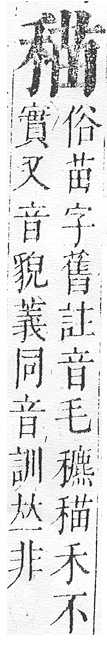 䅦
俗苗字舊註音毛穮䅦禾不
實又音貌義同音訓丛非